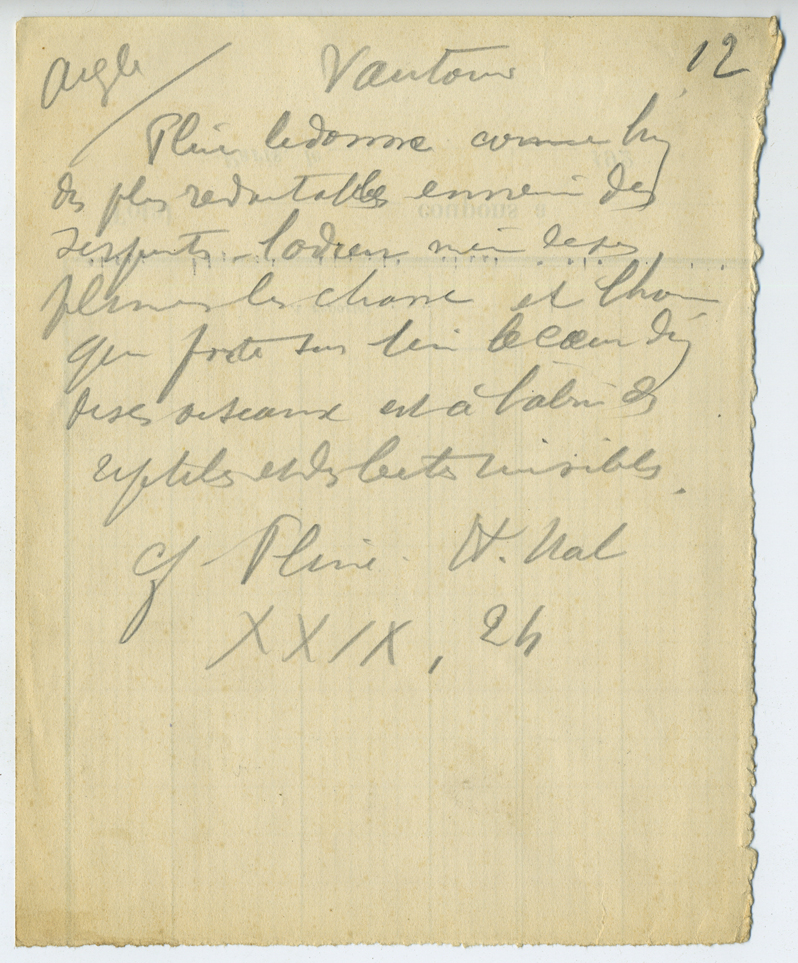 Aigle / Vautour 12
Pline le donne comme l'un
des plus redoutables ennemis des
serpents. l'odeur même de ses
plumes les chasse et l'homme
qui porte sur lui le coeur d'un
de ces oiseaux est à l'abri des
reptiles et des bêtes nuisibles.
cf Pline. H. Nat
XXIX, 24